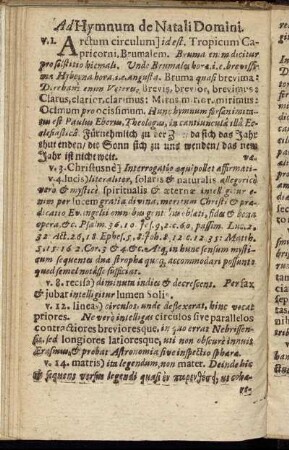 Ad Hymnum de Natali Domini.
v. 1. Arctum circulum] id est, Tropicum Ca-
pricorni, Brumalem. Bruma enim dicitur
pro solstitio hiemali. Unde Brumales hora. i. e. brevissi-
ma Hyberna hora. i. e. angusta. Bruma quasi brevima:
Dicebant enim Veteres Brevis, brevior, brevimus:
Clarus, clarior, clarimus: Mirus mirior, mirimus:
Ocimum pro ocissimum. Hunc hymnum
est Paulus Eberus, Theologus, in cantiuncula illa Ec-
clesiastica: Fürnehmlich zu der Zeit / da sich das Jahr
thut enden / die Sonn sich zu uns wenden / das new
Jahr ist nicht weit. va.
v. 3. Christusne] Interrogatio æquipollet affirmati-
v. 4. lucis] literaliter, solaris & naturalis allegoricè
verò & mysticè spiritualis & æternæ intelligitur e-
nim per lucem gratia divina, meritum Christi & præ-
dicatio Evangelii omnibus gentibus oblati, fides & bona
opera, &c. Psalm. 36. 10. Esaj. 9. 2. & 60. passim. Luc. 2.
32. Act. 26, 18. Ephes. 5, 8. Joh. 8, 12. & 12. 35. Matth.
5, 15. 16. 2. Cor. 3 & 4. &c. Atq, in hunc sensum mysti-
cum sequentes duæ strophæ quoq; accommodari possunt:
quod semel notasse sufficiat.
v. 8. recisa] diminuti indies & decrescent. Per fax
& jubar intelligitur lumen Solis.
v. 12. lineas] circulos. unde deflexerat, hinc vocat
priores. Ne verò intelligas circulos sive parallelos
contractiores brevioresque, in quo errat Nebrissen-
sis, sed longiores latioresque, uti non obscurè innuit
Erasmus, & probat Astronomia sive inspectio sphæræ.
v. 14. matris) ita legendum, non mater. Deinde hic
& sequens versus legendi quasi ἐν παρενθέσει, ut cha-
ra,